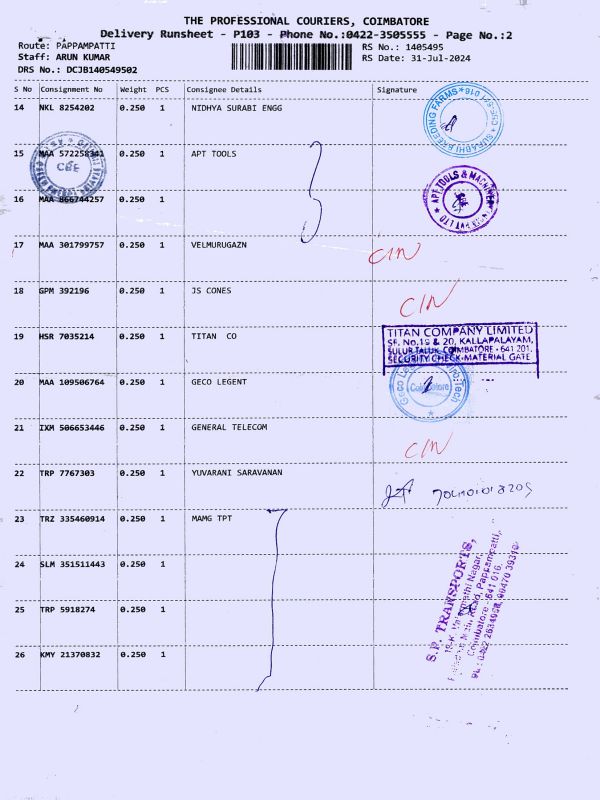 THE PROFESSIONAL COURIERS, COIMBATORE
Delivery Runsheet - P103 - Phone No.:0422-3505555 - Page No.:2
Route: PAPPAMPATTI
RS No.: 1405495
Staff: ARUN KUMAR
RS Date: 31-Jul-2024
DRS No.: DCJB140549502
S No Consignment No Weight PCS Consignee Details Signature
14 NKL 8254202 0.250 1 NIDHYA SURABI ENGG
SURABHI BREEDING FARMS
15 MAA 572258341 0.250 1 APT TOOLS
CBE
16 MAA 866744257 0.250 1
APT TOOLS & MACHINERY
PVT LTD
17 MAA 301799757 0.250 1 VELMURUGAZN
CIN
18 GPM 392196 0.250 1 JS CONES
CIN
19 HSR 7035214 0.250 1 TITAN CO
TITAN COMPANY LIMITED
SF. No.19 & 20, KALLAPALAYAM,
SULUR TALUK, COIMBATORE - 641 201.
SECURITY CHECK-MATERIAL GATE
20 MAA 109506764 0.250 1 GECO LEGENT
Coimbatore
21 IXM 506653446 0.250 1 GENERAL TELECOM
CIN
22 TRP 7767303 0.250 1 YUVARANI SARAVANAN
23 TRZ 335460914 0.250 1 MAMG TPT
24 SLM 351511443 0.250 1
25 TRP 5918274 0.250 1
26 KMY 21370832 0.250 1
S.P. TRANSPORTS,
Nagar,
Main Road, Pappampatti,
Coimbatore - 641 016.